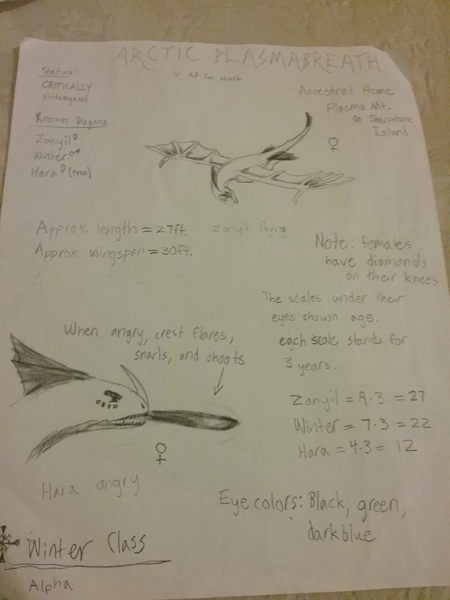 ARCTIC PLASMABREATH
or AP for short
Status:
CRITICALLY
Endangered
Known Dragons
Zanyil ♀
Winter ♂
Hara ♀
Ancestral Home
Plasma Mt.
on
Island
♀
Approx. length = 27ft.
Zanyil flying
Approx. wingspan = 30ft.
Note: females
have diamonds
on their knees
The scales under their
eyes shown age.
each scale stands for
3 years.
When angry, crest flares,
snarls, and shoots
Zanyil = 9·3 = 27
Winter = 7·3 = 22
Hara = 4·3 = 12
♀
Hara angry
Eye colors: Black, green,
dark blue
Winter Class
Alpha